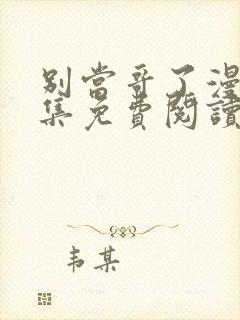 别當哥了漫
集免費閱讀
韦某